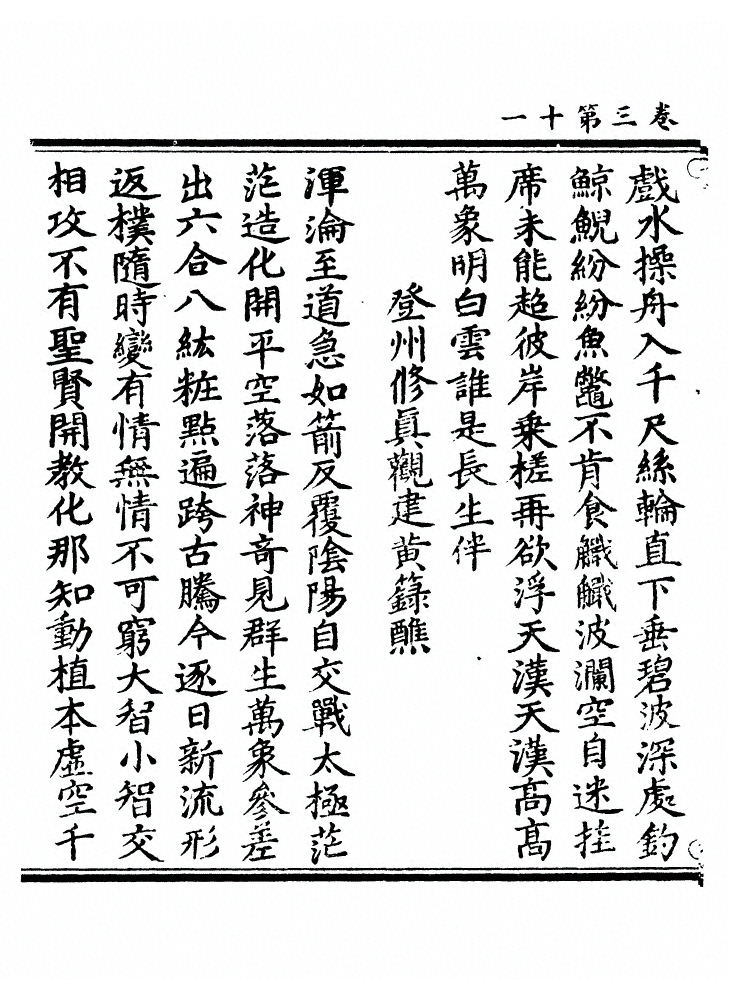 卷三第十一
戲水操舟入千尺絲輪直下垂碧波深處釣
鯨鯢紛紛魚鼈不肯食鱵鱵波瀾空自迷挂
席未能超彼岸乗槎再欲浮天漢天漢髙髙
萬象明白雲誰是長生伴
登州修眞觀建黃籙醮
渾淪至道急如箭反覆陰陽自交戰太極茫
茫造化開平空落落神竒見群生萬象參差
出六合八紘粧點遍跨古騰今逐日新流形
返樸隨時變有情無情不可窮大智小智交
相攻不有聖賢開教化那知動植本虛空千